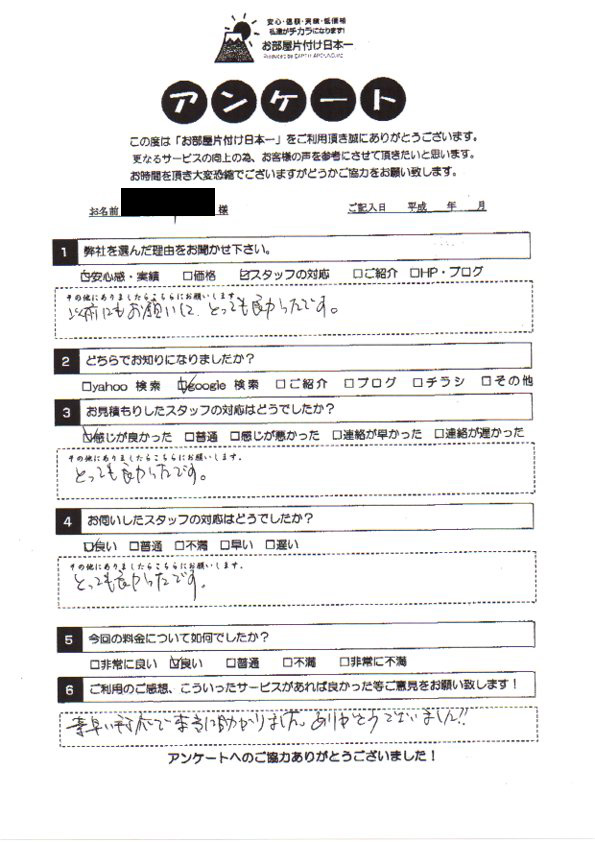 安心・信頼・実績・低価格
私達がチカラになります!
お部屋片付け日本一
Produced by EARTH AROUND Ltd
アンケート
この度は「お部屋片付け日本一」をご利用頂き誠にありがとうございます。
更なるサービスの向上の為、お客様の声を参考にさせて頂きたいと思います。
お時間を頂き大変恐縮でございますがどうかご協力をお願い致します。
お名前 様 ご記入日 平成 年 月
1 弊社を選んだ理由をお聞かせ下さい。
☑安心感・実績 □価格 ☑スタッフの対応 □ご紹介 □HP・ブログ
その他にありましたらこちらにお願いします。
以前にもお願いして、とっても良かったです。
2 どちらでお知りになりましたか?
□yahoo 検索 ☑google 検索 □ご紹介 □ブログ □チラシ □その他
3 お見積もりしたスタッフの対応はどうでしたか?
☑感じが良かった □普通 □感じが悪かった □連絡が早かった □連絡が遅かった
その他にありましたらこちらにお願いします。
とっても良かったです。
4 お伺いしたスタッフの対応はどうでしたか?
☑良い □普通 □不満 □早い □遅い
その他にありましたらこちらにお願いします。
とっても良かったです。
5 今回の料金について如何でしたか?
□非常に良い ☑良い □普通 □不満 □非常に不満
6 ご利用のご感想、こういったサービスがあれば良かった等ご意見をお願い致します!
素早い対応で本当に助かりました。ありがとうございました!!
アンケートへのご協力ありがとうございました!